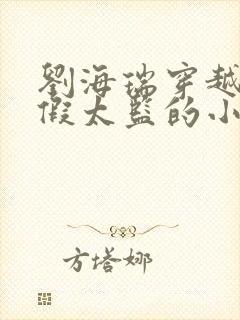 劉海瑞穿越
假太監的小
方塔娜